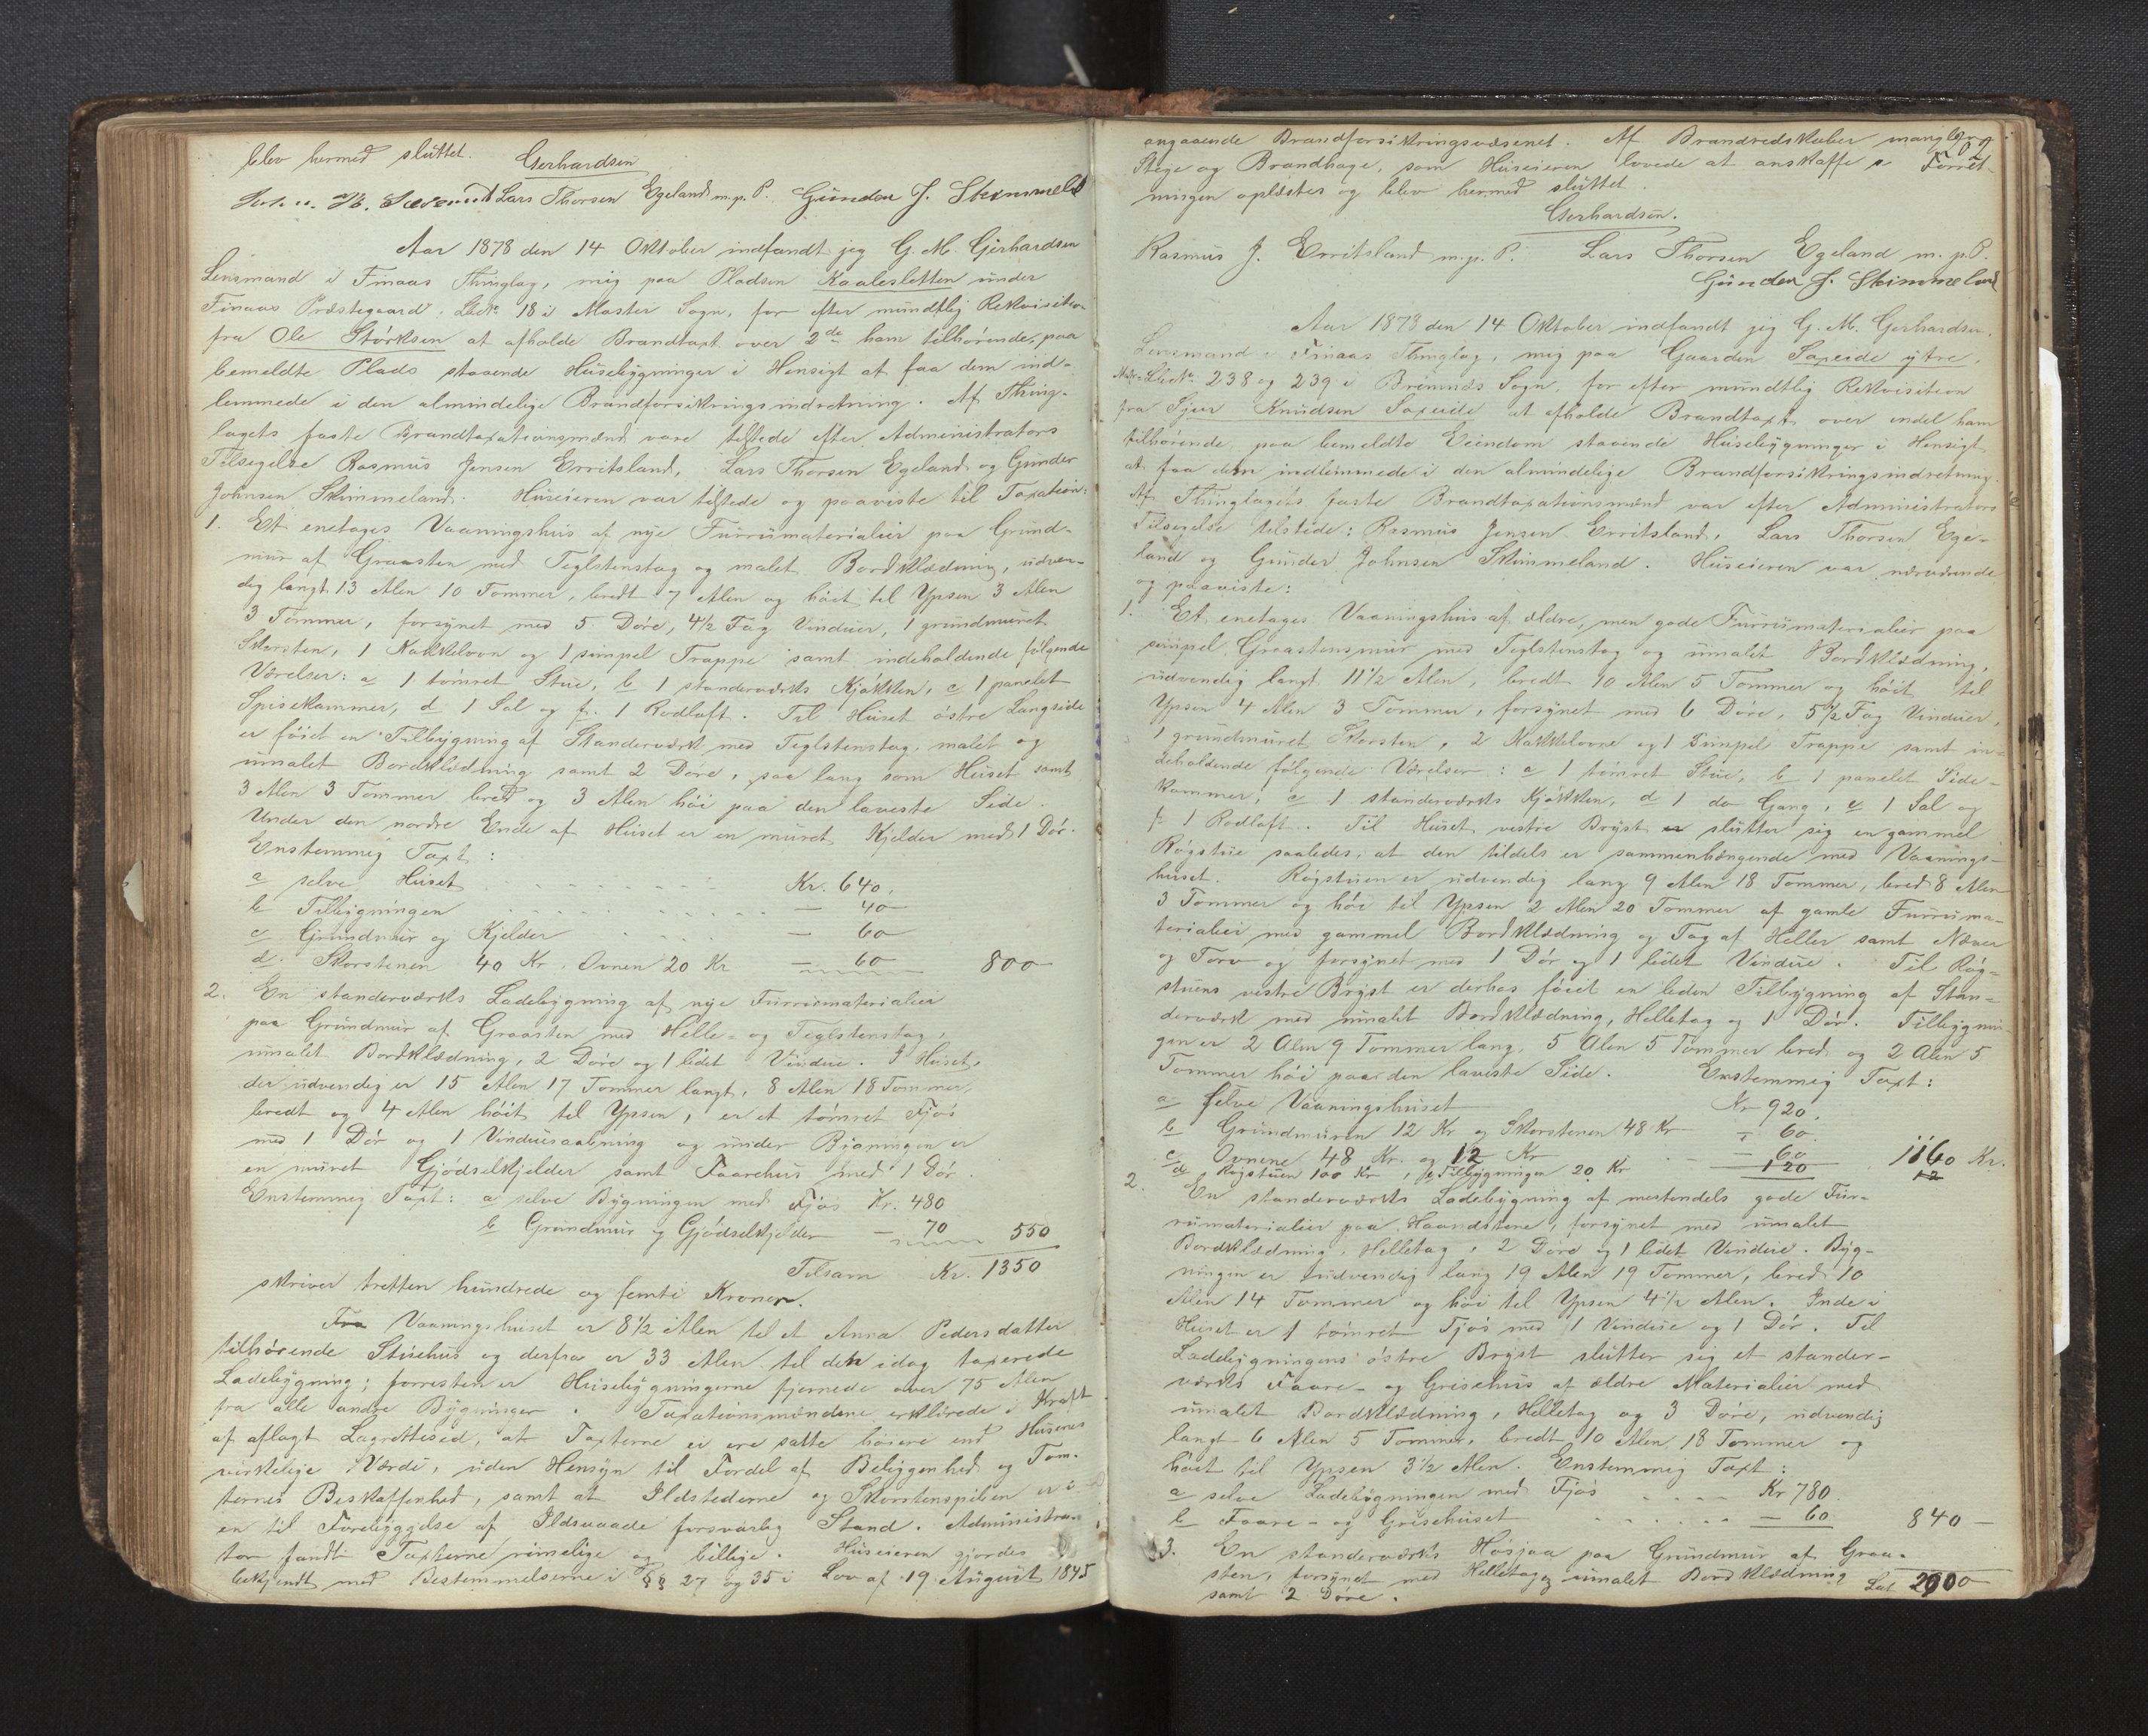 blev hermed sluttet. Gerhardsen
Lars Thorsen Egeland m. p. P. Gunder J. Skimmeld
Aar 1878 den 14 Oktober indfandt jeg G. M. Gerhardsen
Lensmand i Finaas Thinglag, mig paa Pladsen Kaaleslotten under
Finaas Præstegaard, 18 i Moster Sogn, for efter mundtlig Rekvisition
fra Ole Størksen at afholde Brandtaxt over 2de ham tilhørende, paa
bemeldte Plads staaende Husebygninger i Hensigt at faa dem ind-
lemmede i den almindelige Brandforsikringsindretning. Af Thing-
lagets faste Brandtaxationsmænd vare tilstede efter Administrators
Tilsigelse Rasmus Jensen Erritsland, Lars Thorsen Egeland og Gunder
Johnsen Skimmeland. Huseieren var tilstede og paaviste til Taxation:
1. Et enetages Vaaningshus af nye Furrumaterialier paa Grund-
mur af Graasten med Teglstenstag og malet Bordklædning, udven-
dig langt 13 Alen 10 Tommer, bredt 7 Alen og höit til Ypsen 3 Alen
3 Tommer, forsynet med 5 Døre, 4½ Fag Vinduer, 1 grundmuret
Skorsten, 1 Kakkelovn og 1 simpel Trappe samt indeholdende følgende
Værelser: a 1 tømret Stue, b 1 standerværks Kjøkken, c 1 panelet
Spisekammer, d 1 Sal og f. 1 Rodloft. Til Huset østre Langside
er föiet en Tilbygning af Standerværk med Teglstenstag, malet og
umalet Bordklædning samt 2 Døre, saa lang som Huset samt
3 Alen 3 Tommer bred og 3 Alen höi paa den laveste Side.
Under den nordre Ende af Huset er en muret Kjelder med 1 Dör.
Enstemmig Taxt:
a selve Huset Kr. 640.
b Tilbygningen — 40 —
c Grundmur og Kjelder — 60
d. Skorstenen 40 Kr. Ovnen 20 Kr — 60 800 —
2. En standerværks Ladebygning af nye Furrumaterialier
paa Grundmur af Graasten med Helle- og Teglstenstag,
umalet Bordklædning, 2 Døre og 1 lidet Vindue. I Huset,
der udvendig er 15 Alen 17 Tommer langt, 8 Alen 18 Tommer
bredt og 4 Alen höit til Ypsen, er et tømret Fjøs
med 1 Dør og 1 Vinduesaabning og under Bygningen er
en muret Gjødselkjelder samt Faarehus med 1 Dør.
Enstemmig Taxt: a selve Bygningen med Fjøs Kr. 480
b Grundmur og Gjødselkjelder — 70 550
Tilsam Kr. 1350
skriver tretten hundrede og femti Kroner.
Fra Vaaningshuset er 8½ Alen til et Anna Pedersdatter
tilhørende Stuehus og derfra er 33 Alen til den idag taxerede
Ladebygning; forresten er Husebygningerne fjernede over 75 Alen
fra alle andre Bygninger. Taxationsmændene erklærede i Kraft
af aflagt Lagrettesed, at Taxterne ei ere satte høiere end Husenes
virkelige Værdi, uden Hensyn til Fordel af Beliggenhed og Tom-
ternes Beskaffenhed, samt at Ildstederne og Skorstenspiben er i
en til Forebyggelse af Ildsvaade forsvarlig Stand. Administra-
tor fandt Taxterne rimelige og billige. Huseieren gjordes
bekjendt med Bestemmelserne i §§ 27 og 35 i Lov af 19 August 1845
angaaende Brandforsikringsvæsenet. Af Brandredskaber mangler
Stege og Brandhage, som Huseieren lovede at anskaffe. Forret-
ningen oplæstes og blev hermed sluttet.
Gerhardsen.
Rasmus J. Erritsland m. p. P. Lars Thorsen Egeland m. p. P.
Gunder J. Skimmeland
Aar 1878 den 14 Oktober indfandt jeg G. M. Gerhardsen.
Lensmand i Finaas Thinglag, mig paa Gaarden Saxeide ytre,
238 og 239 i Bremnæs Sogn, for efter mundtlig Rekvisition
fra Sjur Knudsen Saxeide at afholde Brandtaxt over endel ham
tilhørende, paa bemeldte Eiendom staaende Husebygninger i Hensigt
at faa dem indlemmede i den almindelige Brandforsikringsindretning.
Af Thinglagets faste Brandtaxationsmænd var efter Administrators
Tilsigelse tilstede: Rasmus Jensen Erritsland, Lars Thorsen Ege-
land og Gunder Johnsen Skimmeland. Huseieren var nærværende
og paaviste:
1. Et enetages Vaaningshus af ældre, men gode Furrumaterialier paa
simpel Graastensmur med Teglstenstag og umalet Bordklædning,
udvendig langt 11½ Alen, bredt 10 Alen 5 Tommer og höit til
Ypsen 4 Alen 3 Tommer, forsynet med 6 Døre, 5½ Fag Vinduer,
1 grundmuret Skorsten, 2 Kakkelovne og 1 simpel Trappe samt in-
deholdende følgende Værelser: a 1 tømret Stue, b 1 panelet Side-
kammer, c 1 standerværks Kjøkken, d 1 do Gang, e 1 Sal og
f 1 Rodloft. Til Huset vestre Bryst slutter sig en gammel
Røgstue saaledes, at den tildels er sammenhængende med Vaanings-
huset. Røgstuen er udvendig lang 9 Alen 18 Tommer, bred 8 Alen
3 Tommer og höi til Ypsen 2 Alen 20 Tommer af gamle Furruma-
terialier med gammel Bordklædning og Tag af Heller samt Næver
og Torv og forsynet med 1 Dør og 1 lidet Vindue. Til Røg-
stuens vestre Bryst er derhos föiet en liden Tilbygning af Stan-
derværk med umalet Bordklædning, Helletag og 1 Dør. Tilbygnin-
gen er 2 Alen 9 Tommer lang, 5 Alen 5 Tommer bred og 2 Alen 5
Tommer höi paa den laveste Side. Enstemmig Taxt:
a selve Vaaningshuset Kr 920.
b Grundmuren 12 Kr og Skorstenen 48 Kr — 60.
c Ovnene 48 Kr. og 12 Kr — 60
d Røgstuen 100 Kr, Tilbygningen 20 Kr 120 1160 Kr.
2. En standerværks Ladebygning af mestendels gode Fur-
rumaterialier paa Haandstene, forsynet med umalet
Bordklædning, Helletag, 2 Døre og 1 lidet Vindue. Byg-
ningen er udvendig lang 19 Alen 19 Tommer, bred 10
Alen 14 Tommer og höi til Ypsen 4½ Alen. Inde i
Huset er 1 tømret Fjøs med 1 Vindue og 1 Dør. Til
Ladebygningens østre Bryst slutter sig et stander-
værks Faare- og Grisehus af ældre Materialier med
umalet Bordklædning, Helletag og 3 Døre, udvendig
langt 6 Alen 5 Tommer, bredt 10 Alen 18 Tommer og
höit til Ypsen 3½ Alen. Enstemmig Taxt:
a selve Ladebygningen med Fjøs Kr 780.
b Faare- og Grisehuset — 60 840 —
3. En standerværks Høsjaa paa Grundmur af Graa-
sten, forsynet med Helletag og umalet Bordklædning
samt 2 Døre. Lat 2000